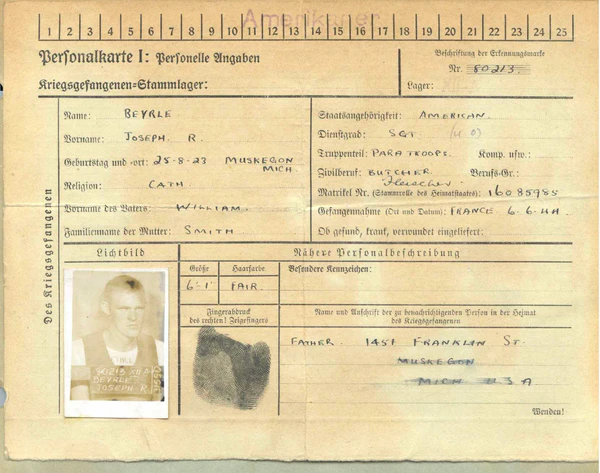 Amerikaner
1 2 3 4 5 6 7 8 9 10 11 12 13 14 15 16 17 18 19 20 21 22 23 24 25
Personalkarte I: Personelle Angaben
Kriegsgefangenen=Stammlager:
Beschriftung der Erkennungsmarke
Nr. 80213
Lager:
Des Kriegsgefangenen
Name: BEYRLE
Vorname: JOSEPH. R.
Geburtstag und -ort: 25-8-23 MUSKEGON
MICH.
Religion: CATH.
Vorname des Vaters: WILLIAM.
Familienname der Mutter: SMITH
Staatsangehörigkeit: AMERICAN.
Dienstgrad: SGT
Truppenteil: PARATROOPS. Komp. usw.:
Zivilberuf: BUTCHER. Berufs-Gr.:
Fleischer
Matrikel Nr. (Stammrolle des Heimatstaates): 16085985
Gefangennahme (Ort und Datum): FRANCE 6-6-44.
Ob gesund, krank, verwundet eingeliefert:
Lichtbild
80213 XII A
BEYRLE
JOSEPH R.
Nähere Personalbeschreibung
Größe
6-1
Haarfarbe
FAIR.
Besondere Kennzeichen:
Fingerabdruck
des rechten! Zeigefingers
Name und Anschrift der zu benachrichtigenden Person in der Heimat
des Kriegsgefangenen
FATHER. 1451 FRANKLIN ST.
MUSKEGON
MICH U.S.A
Wenden!